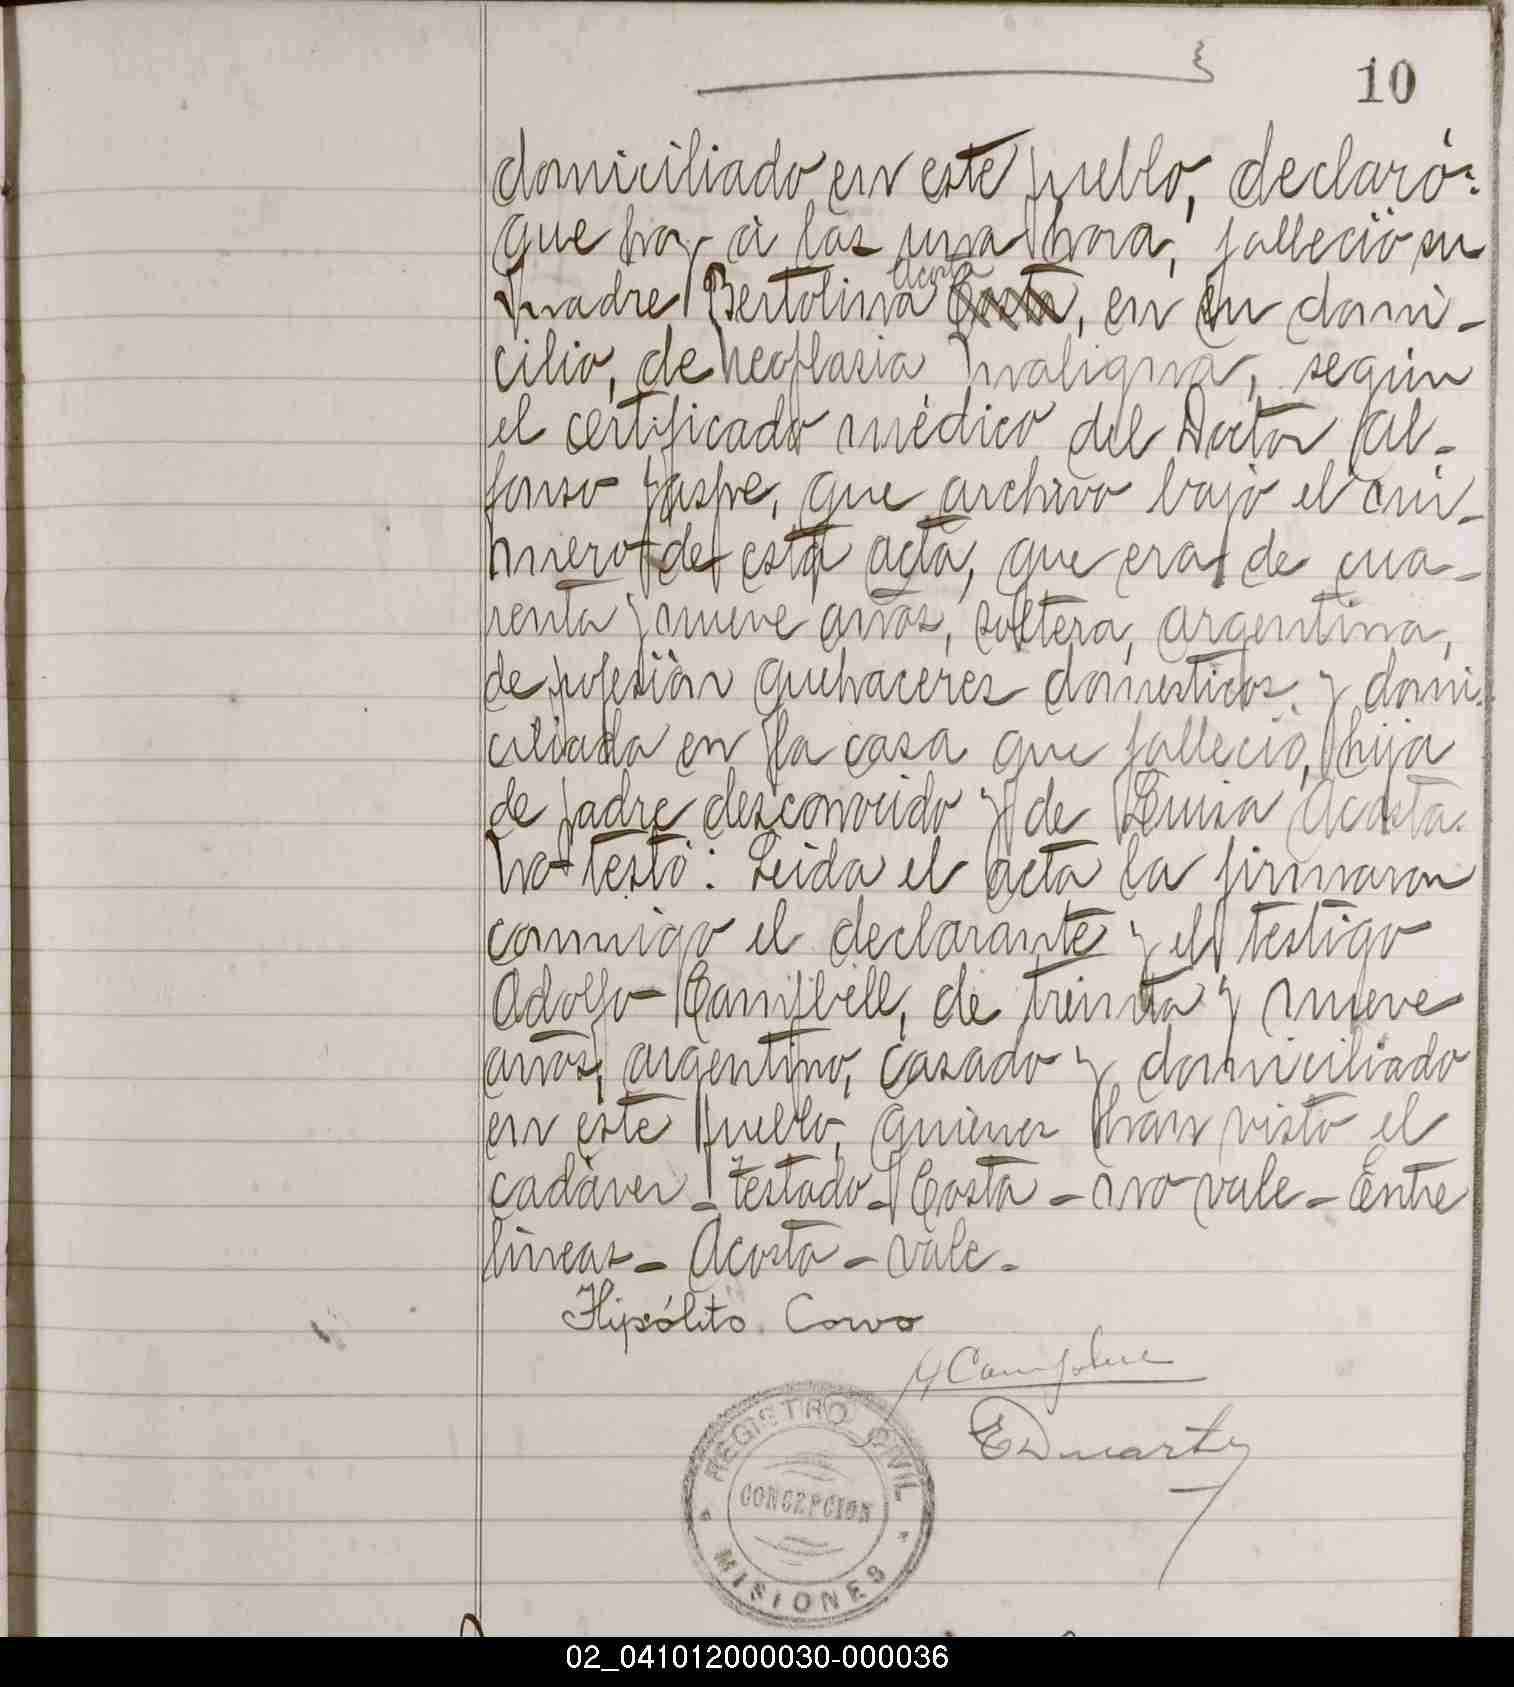 10
domiciliado en este pueblo, declaró:
que hoy à las una hora, falleció su
madre Bertolina Acosta Costa, en su domi-
cilio, de neoplasia maligna, según
el certificado médico del Doctor Al-
fonso Jaspe, que archivo bajo el nú-
mero de esta acta, que era de cua-
renta y nueve años, soltera, argentina,
de profesiòn quehaceres domesticos y domi-
ciliada en la casa que falleció, hija
de padre desconocido y de Luisa Acosta.
No testó: Leida el acta la firmaron
conmigo el declarante y el testigo
Adolfo Campbell, de treinta y nueve
años, argentino, casado y domiciliado
en este pueblo, quienes han visto el
cadáver - testado - Costa - no vale - Entre
lineas - Acosta - vale -
Hipólito Corvo
Duarte
REGISTRO CIVIL
CONCEPCION
MISIONES
02_041012000030-000036